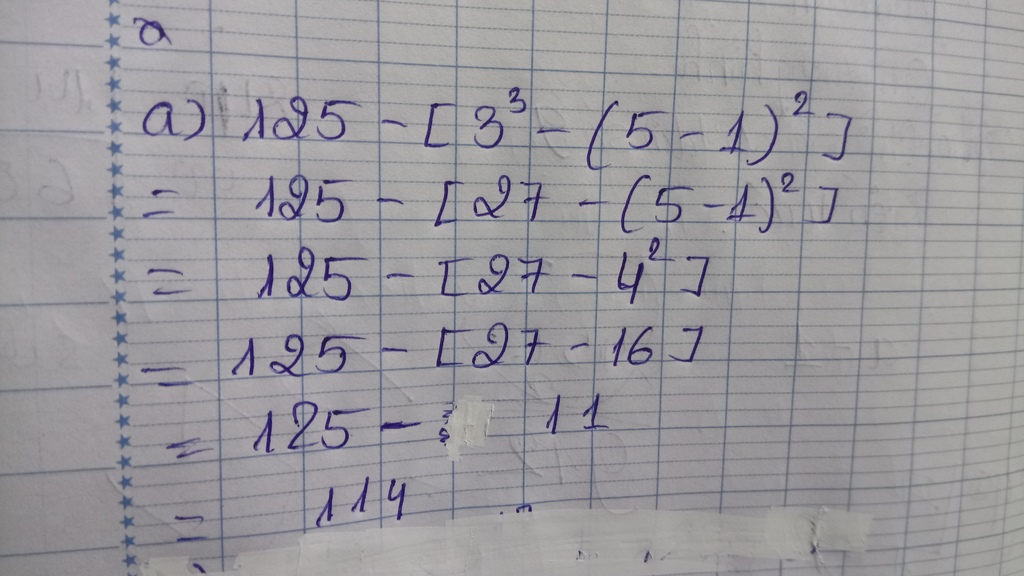 a
a) 125 - [ 3³ - (5 - 1)² ]
= 125 - [ 27 - (5 - 1)² ]
= 125 - [ 27 - 4² ]
= 125 - [ 27 - 16 ]
= 125 - 11
= 114